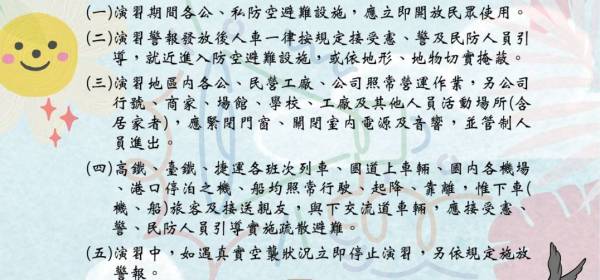 (一)演習期間各公、私防空避難設施，應立即開放民眾使用。
(二)演習警報發放後人車一律按規定接受憲、警及民防人員引
導，就近進入防空避難設施，或依地形、地物切實掩蔽。
(三)演習地區內各公、民營工廠、公司照常營運作業，另公司
行號、商家、場館、學校、工廠及其他人員活動場所(含
居家者)，應緊閉門窗、關閉室內電源及音響，並管制人
員進出。
(四)高鐵、臺鐵、捷運各班次列車、國道上車輛、國內各機場
、港口停泊之機、船均照常行駛、起降、靠離，惟下車(
機、船)旅客及接送親友，與下交流道車輛，應接受憲、
警、民防人員引導實施疏散避難。
(五)演習中，如遇真實空襲狀況立即停止演習，另依規定施放
警報。